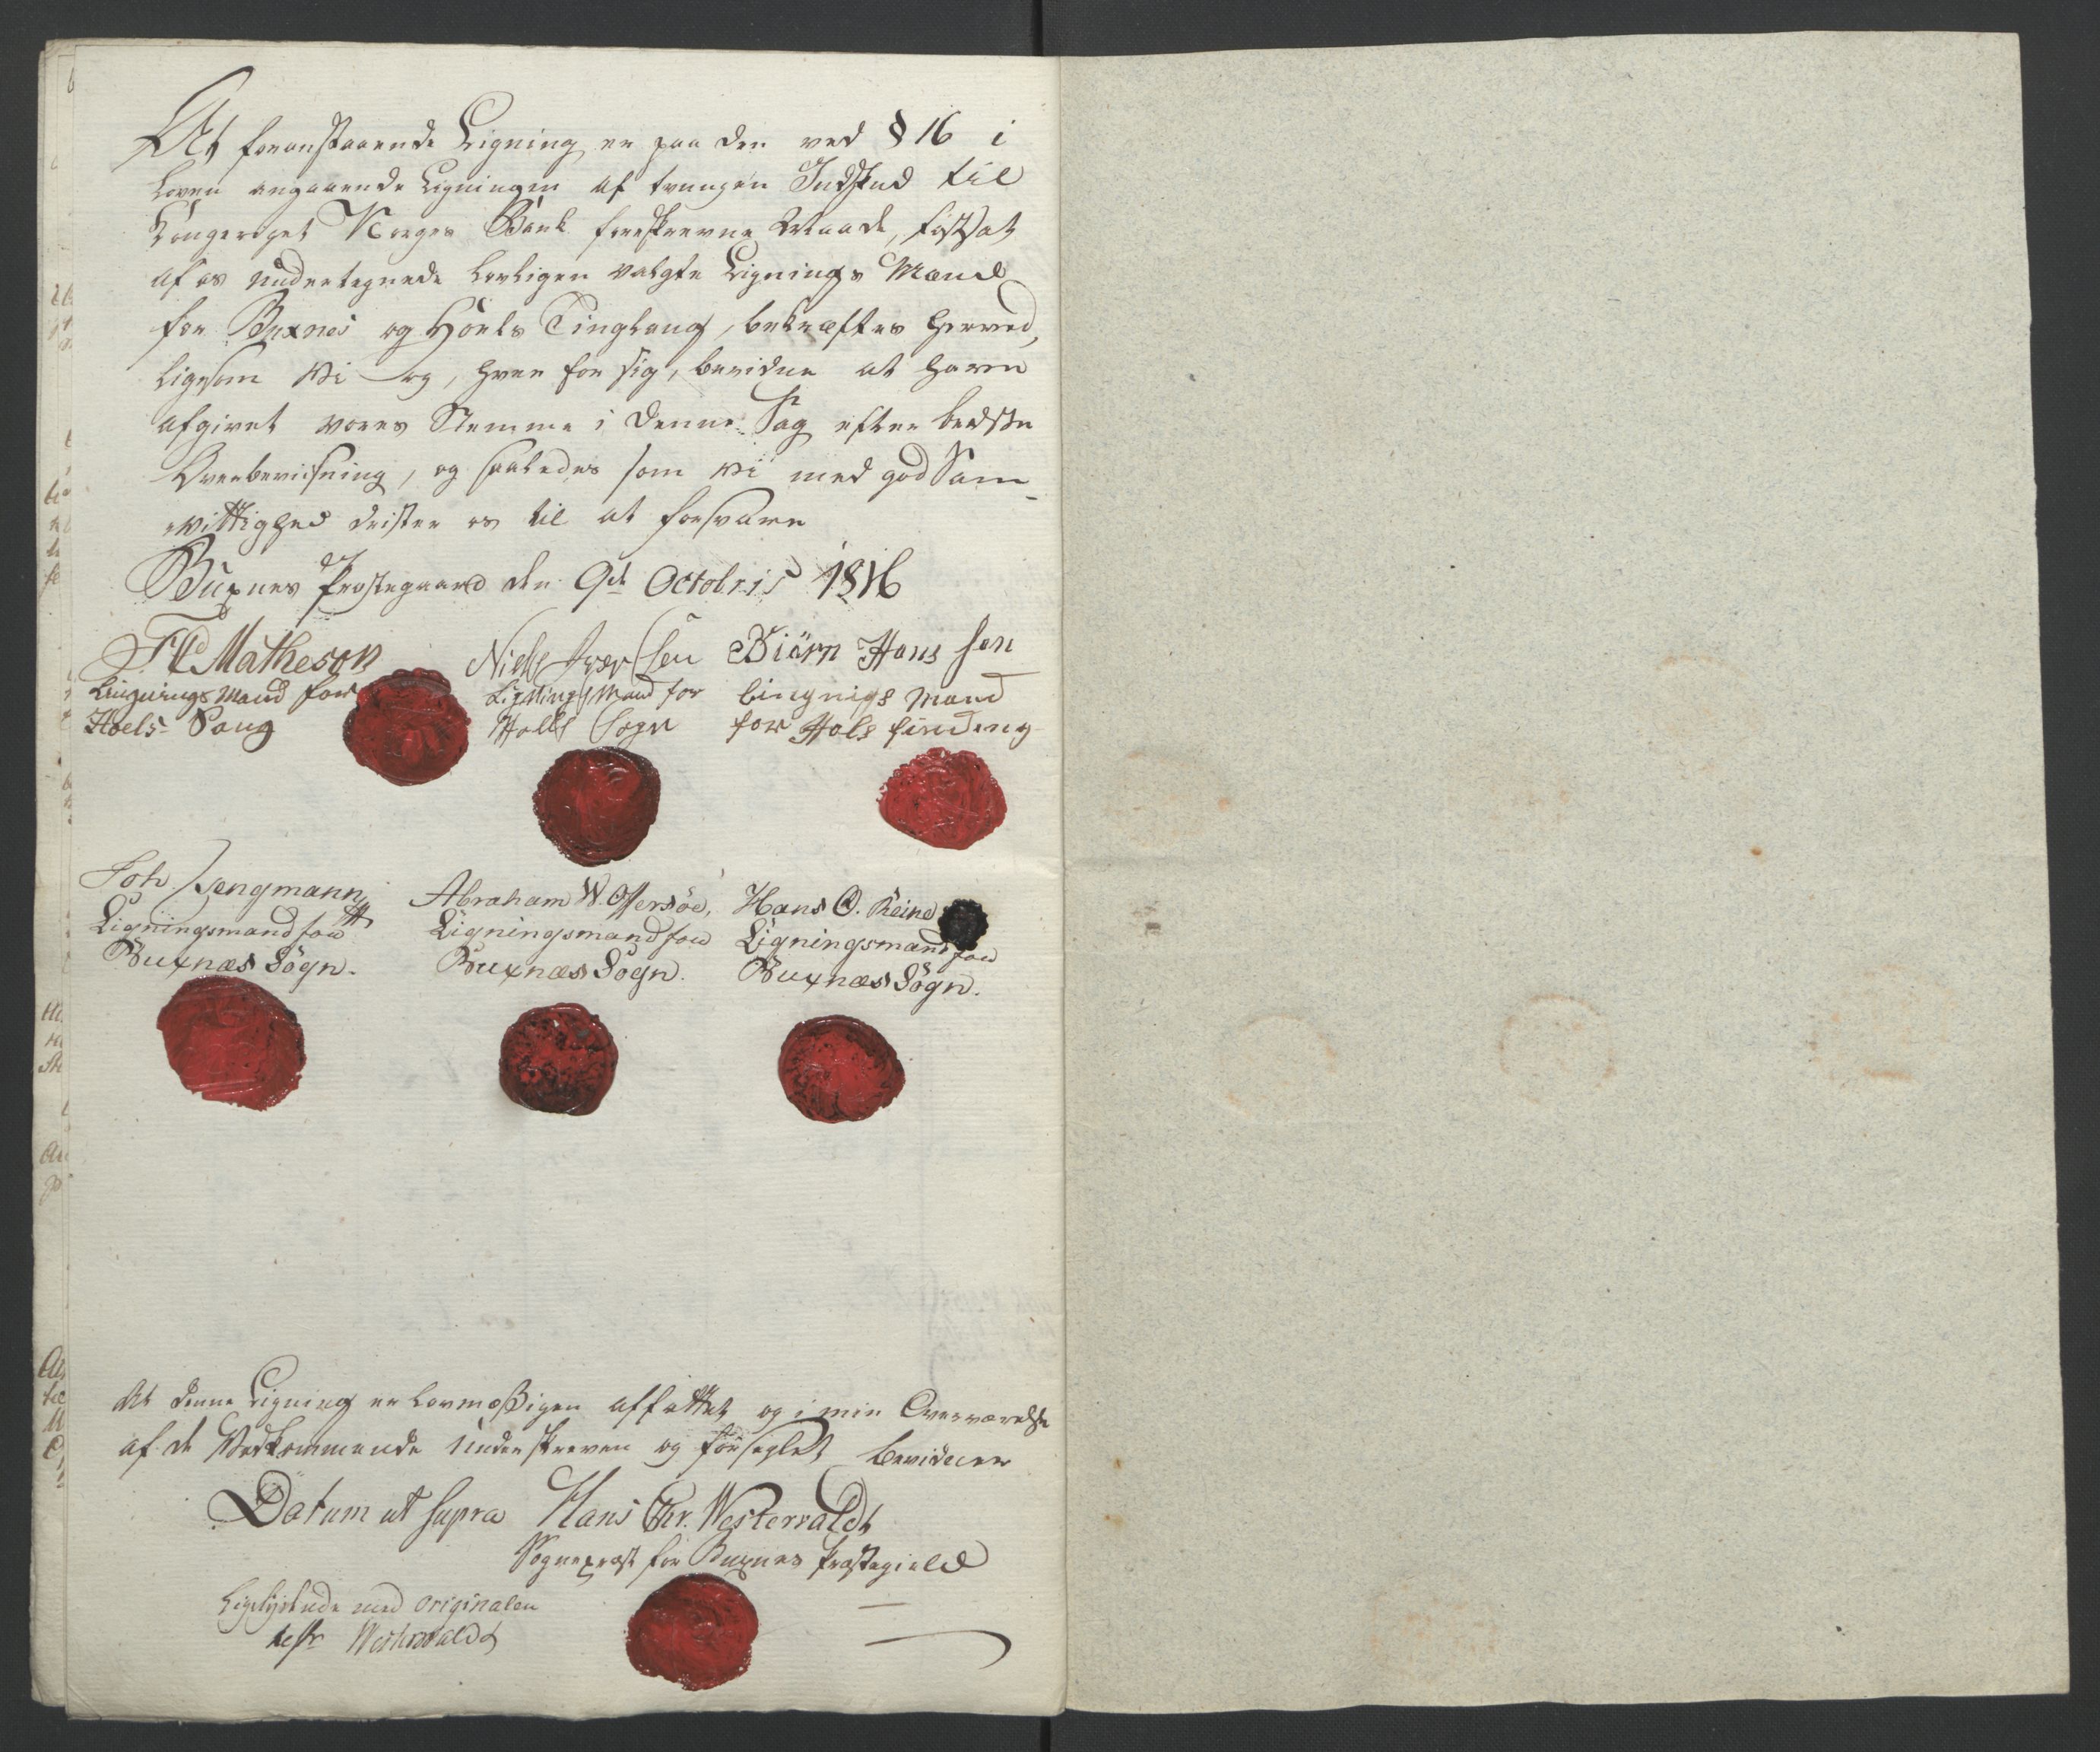 At foranstaaende Ligning er paa den ved § 16 i
Loven angaaende Ligningen af tvungen Indskud til
Kongeriget Norges Bank foreskrevne Maade, fastsat
af os undertegnede lovligen valgte Lignings Mænd
for Buxnes og Hoels Tinglaug, bekræftes herved,
ligesom vi og, hver for sig, bevidne at have
afgivet vores Stemme i denne Sag efter bedste
Overbeviisning, og saaledes som vi med god Sam-
vittighed drister os til at forsvare
Buxnes Præstegaard den 9d Octobris 1816
Matheson
Niels Iver Sen
Biörn Hans sen
Lingnings Mand for
Hoels Sang
Ligning Mand for
Holls Sogn
lingnigs Mand
for Hols
Joh Jengmann
Ligningsmand for
Buxnæs Sogn.
Abraham W. Offersöe,
Ligningsmand for
Buxnæs Sogn.
Hans O. Reine
Ligningsmand for
Buxnæs Sogn.
At denne Ligning er lovmæßigen affattet og i min Overværelse
af de Vedkommende underskreven og forseglet bevidner
Datum ut supra Hans Chr. Westervaldt
Sognepræst for Buxnes Præstegield
Ligelydende med Originalen
test Westervaldt